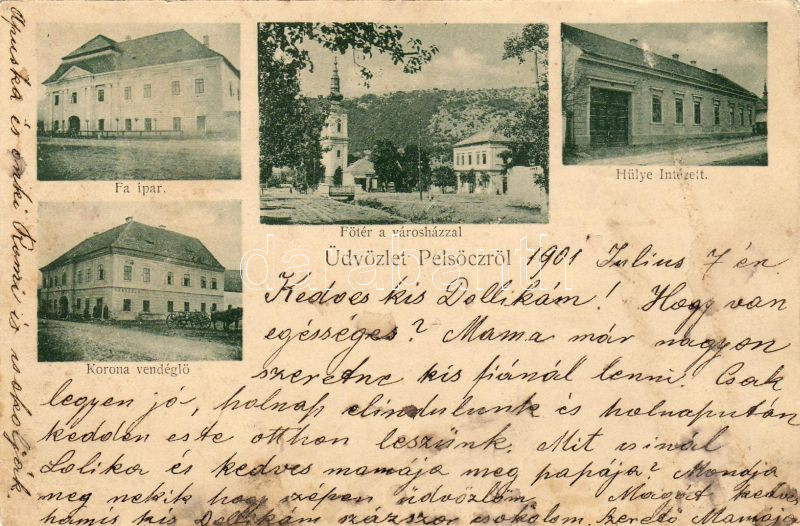 Fa ipar.
Főtér a városházzal
Hülye Intézett.
Korona vendéglő
Üdvözlet Pelsőczről
1901 Julius 7 én.
Kedves kis Dollikám! Hogy van
egésséges? Mama már nagyon
szeretne kis fiánál lenni. Csak
legyen jó, holnap elindulunk és holnapután
kedden este otthon leszünk. Mit csinál
Lolika és kedves mamája meg papája? Mondja
meg nekik hogy szépen üdvözlöm. Magát kedves
hamis kis Dollikám százszor csókolom. Szerető Mamája
Apuska és önki Romi is csókolják.
darabanth